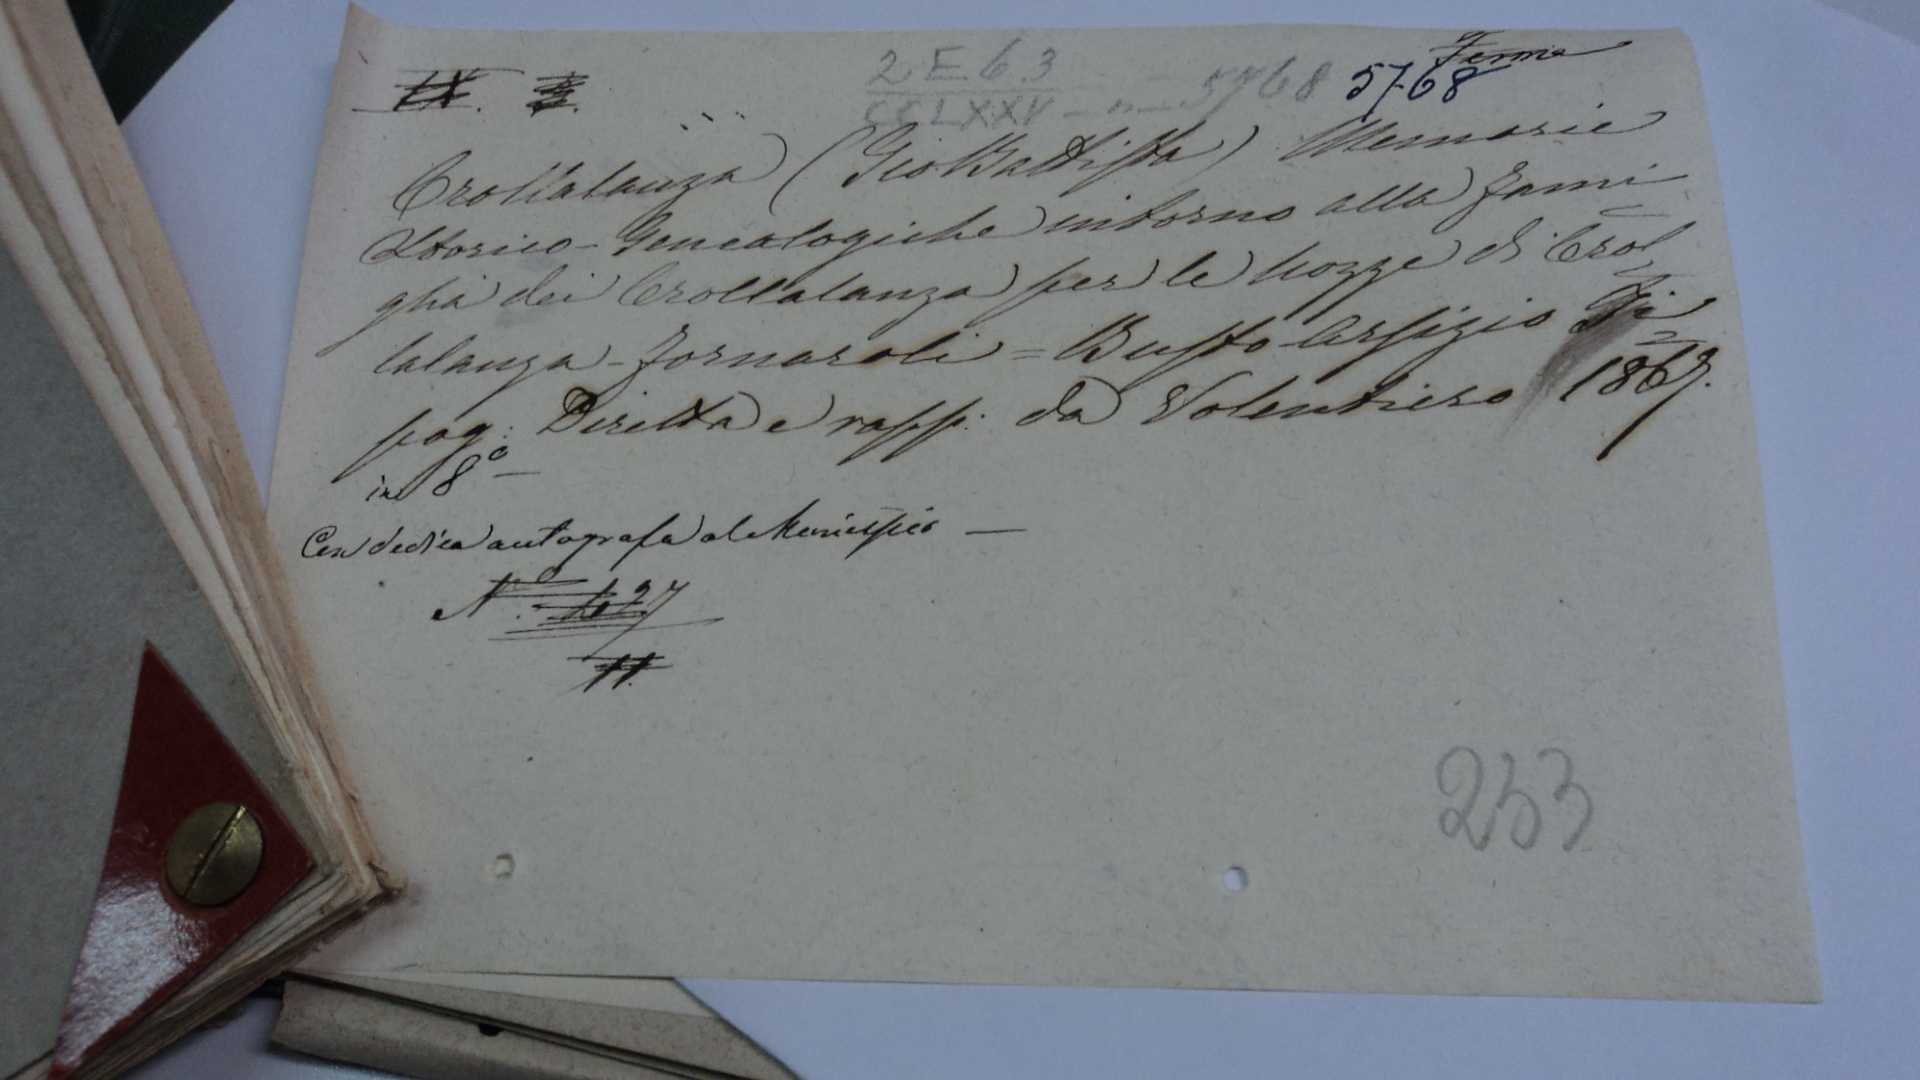 2 E 63
Fermo
CCLXXV - n - 5768 5768
Crollalanza (Gio Battista) Memorie
Storico-Genealogiche intorno alla fami
glia dei Crollalanza per le nozze di Crol
lalanza - Fornaroli = Busto-Arsizio Ti
pog: Diretta e rapp. da Volentiero 1867.
in 8º -
Con dedica autografa al Municipio —
Nº
233